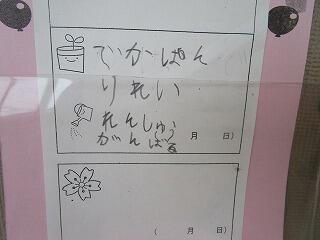 でかぱん
りれい
れんしゅう
がんばる
月 日)
( 月 日)